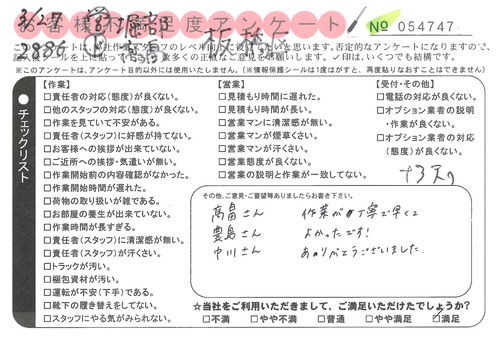 3/27
お客様満足度アンケート
板橋店
No 054747
※このアンケートは、アンケート目的以外には使用いたしません。(※情報保護シールは1度はがすと、再度貼りなおすことはできません)
●チェックリスト
【作業】
□責任者の対応(態度)が良くない。
□他のスタッフの対応(態度)が良くない。
□作業を見ていて不安がある。
□責任者(スタッフ)に好感が持てない。
□お客様への挨拶が出来ていない。
□ご近所への挨拶・気遣いが無い。
□作業開始前の内容確認がなかった。
□作業開始時間が遅れた。
□荷物の取り扱いが雑である。
□お部屋の養生が出来ていない。
□作業時間が長すぎる。
□責任者(スタッフ)に清潔感が無い。
□責任者(スタッフ)が汗くさい。
□トラックが汚い。
□梱包資材が汚い。
□運転が不安(下手)である。
□靴下の履き替えをしてない。
□スタッフにやる気がみられない。
【営業】
□見積もり時間に遅れた。
□見積もり時間が長い。
□営業マンに清潔感が無い。
□営業マンが煙草くさい。
□営業マンが汗くさい。
□営業態度が良くない。
□営業の説明と作業が一致してない。
【受付・その他】
□電話の対応が良くない。
□オプション業者の説明・作業が良くない。
□オプション業者の対応(態度)が良くない。
その他、ご意見・ご要望等ありましたらお書き下さい。
高畠さん 作業が丁寧で早くて
豊島さん よかったです!
中川さん ありがとうございました。
☆当社をご利用いただきまして、ご満足いただけたでしょうか?
□不満 □やや不満 □普通 □やや満足 □満足